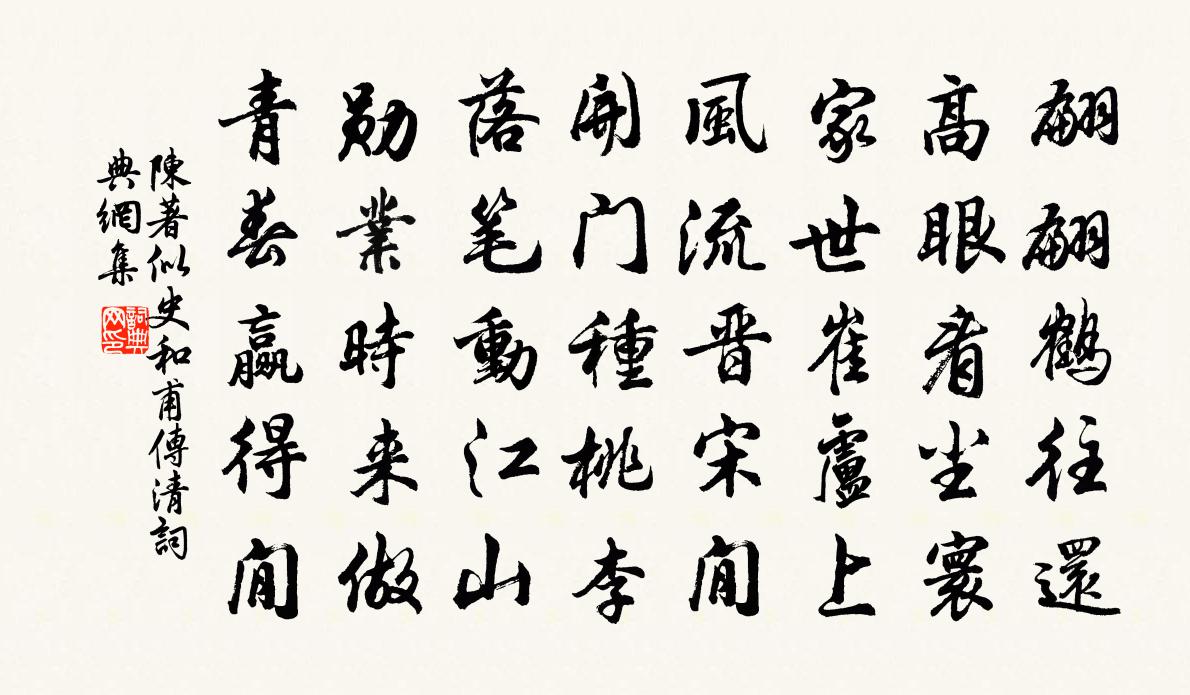 翩翩鶴往還
高眼看尘寰
家世崔盧上
風流晋宋間
開门種桃李
落笔動江山
勋業時来做
青春贏得閒
陳著似史和甫傳清詞
典網集
詞典网印